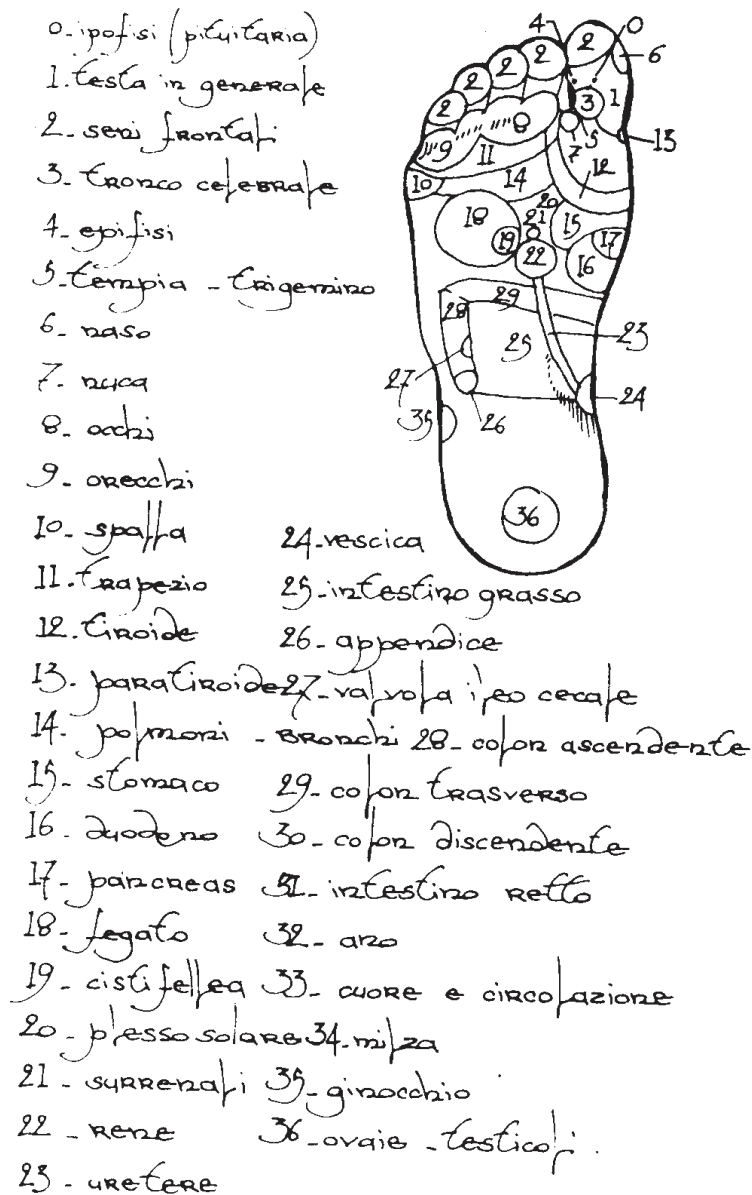 0-ipofisi (pituitaria)
1. testa in generale
2- seni frontali
3- tronco celebrale
4- epifisi
5-tempia - trigemino
6- naso
7- nuca
8- occhi
9- orecchi
10- spalla
11. trapezio
12. tiroide
13. paratiroide
14. polmoni - bronchi
15- stomaco
16- duodeno
17- pancreas
18- fegato
19- cistifellea
20- plesso solare
21- surrenali
22- rene
23- uretere
24-vescica
25-intestino grasso
26- appendice
27-valvola ileo cecale
28-colon ascendente
29-colon trasverso
30-colon discendente
31-intestino retto
32- ano
33- cuore e circolazione
34-milza
35-ginocchio
36-ovaie -testicoli.
4 0
2 2 2 2 2
6
1
3
13
8
5
7
9
11
12
10
14
20
21
15
18
19
17
22
16
28
29
25
23
27
24
35
26
36